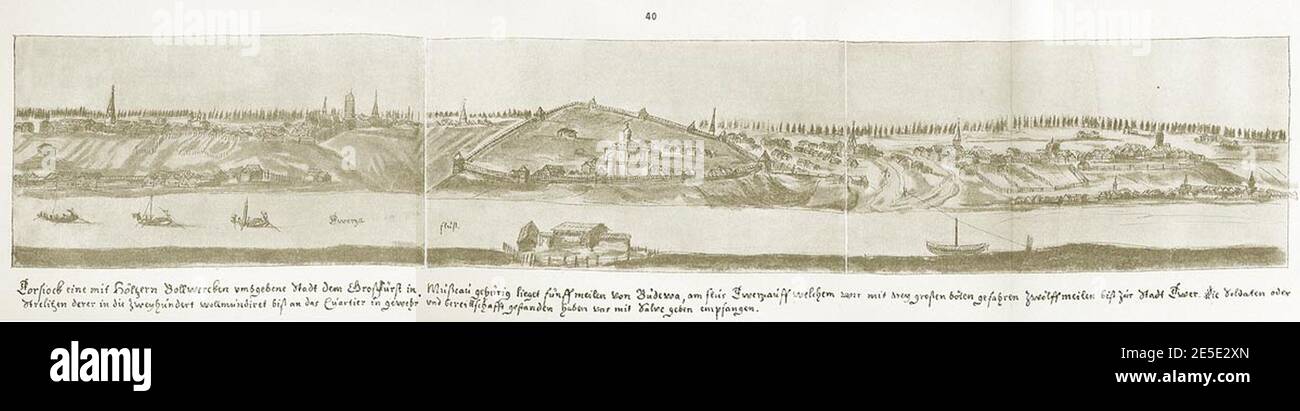 40
alamy
Twerza
fluß.
Torsiock eine mit Höltzern Bollwercken umbgebene Stadt dem Großfürst in Mußcau gehörig lieget fünff meilen von Büdewa, am fluß Twerza auff welchem wir mit drey großen böten gefahren Zwölff meilen biß zur Stadt Twer. Die Soldaten oder
Strelitzen derer in die Zweyhundert wollmundiret biß an das Quartier in gewehr und bereittschafft gestanden haben uns mit Salve geben empfangen.
alamy
Image ID: 2E5E2XN
www.alamy.com